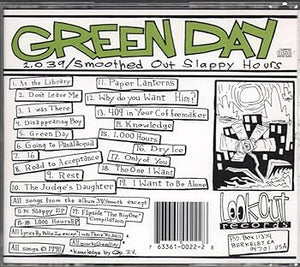 GREEN DAY
1,039/Smoothed Out Slappy Hours
1. At the Library
2. Don't Leave Me
3. I was There
4. Disappearing Boy
5. Green Day
6. Going to Pasalacqua
7. 16
8. Road to Acceptance
9. Rest
10. The Judge's Daughter
11. Paper Lanterns
12. Why do you Want Him?
13. 409 in Your Coffeemaker
14. Knowledge
15. 1,000 Hours
16. Dry Ice
17. Only of You
18. The One I Want
19. I Want to Be Alone
All songs from the album 39/smooth except
11-14 Slappy EP
15-18 1,000 Hours EP
19 Flipside "The Big One" Compilation
All songs © 1990
knowledge by Op I.V.
7 63361-0022-2 8
Lookout
records
P.O. Box 11374
BERKELEY CA
94701 USA